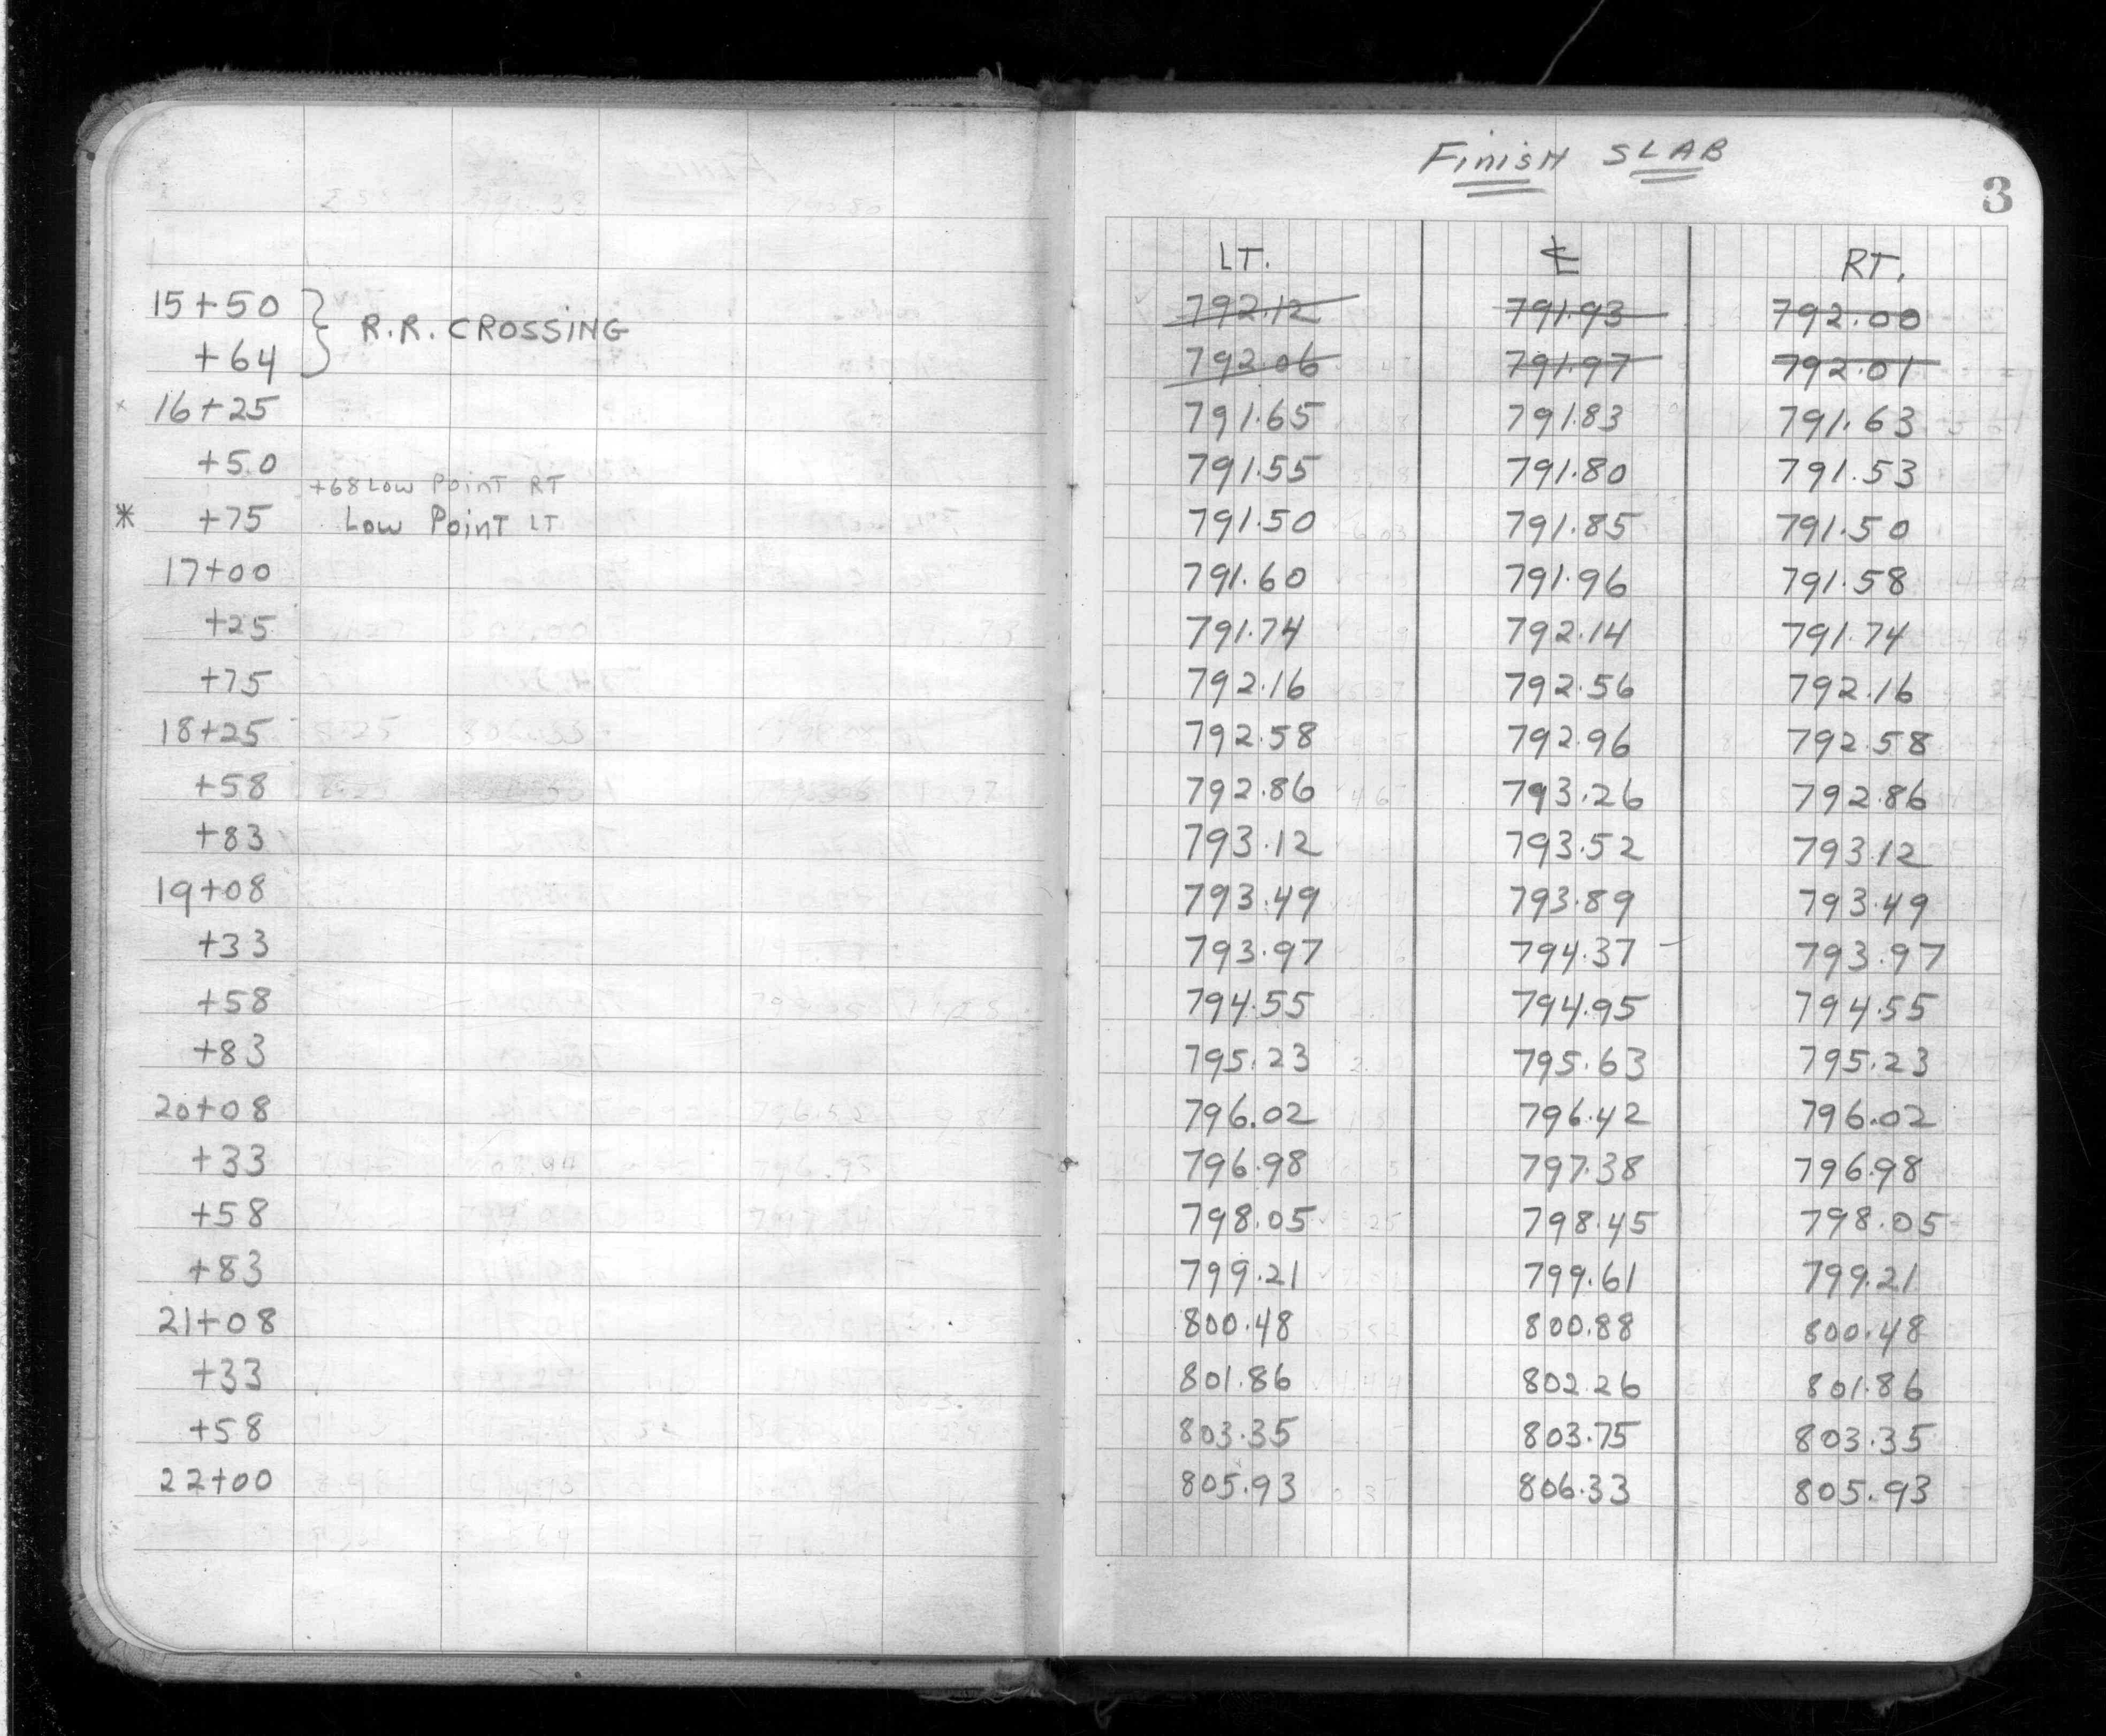 Finish SLAB
3
LT. ℄ RT.
15+50 R.R. CROSSING 792.12 791.93 792.00
+64 792.06 791.97 792.01
16+25 791.65 791.83 791.63
+50 791.55 791.80 791.53
+68 Low Point RT
* +75 Low Point LT 791.50 791.85 791.50
17+00 791.60 791.96 791.58
+25 791.74 792.14 791.74
+75 792.16 792.56 792.16
18+25 792.58 792.96 792.58
+58 792.86 793.26 792.86
+83 793.12 793.52 793.12
19+08 793.49 793.89 793.49
+33 793.97 794.37 793.97
+58 794.55 794.95 794.55
+83 795.23 795.63 795.23
20+08 796.02 796.42 796.02
+33 796.98 797.38 796.98
+58 798.05 798.45 798.05
+83 799.21 799.61 799.21
21+08 800.48 800.88 800.48
+33 801.86 802.26 801.86
+58 803.35 803.75 803.35
22+00 805.93 806.33 805.93